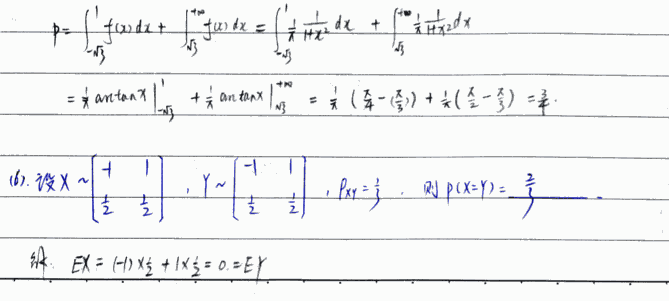 p = ∫_{-√3}^{1} f(x) dx + ∫_{√3}^{+∞} f(x) dx = ∫_{-√3}^{1} 1/π 1/(1+x²) dx + ∫_{√3}^{+∞} 1/π 1/(1+x²) dx
= 1/π arctan x |_{-√3}^{1} + 1/π arctan x |_{√3}^{+∞} = 1/π (π/4 - (-π/3)) + 1/π (π/2 - π/3) = 3/4.
(6). 设 X ~ [-1 1; 1/2 1/2], Y ~ [-1 1; 1/2 1/2], ρ_{XY} = 1/3. 则 P(X=Y) = 2/3.
解. EX = (-1) × 1/2 + 1 × 1/2 = 0. = EY